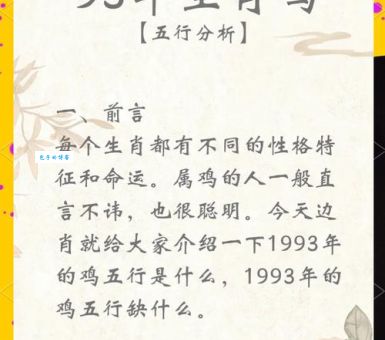 93年生肖鸡
【五行分析】
一、前言
每个生肖都有不同的性格特
包子的博客
征和命运。属鸡的人一般直
言不讳，也很聪明。今天边
肖就给大家介绍一下1993年
的鸡五行是什么，1993年的
鸡五行缺什么。